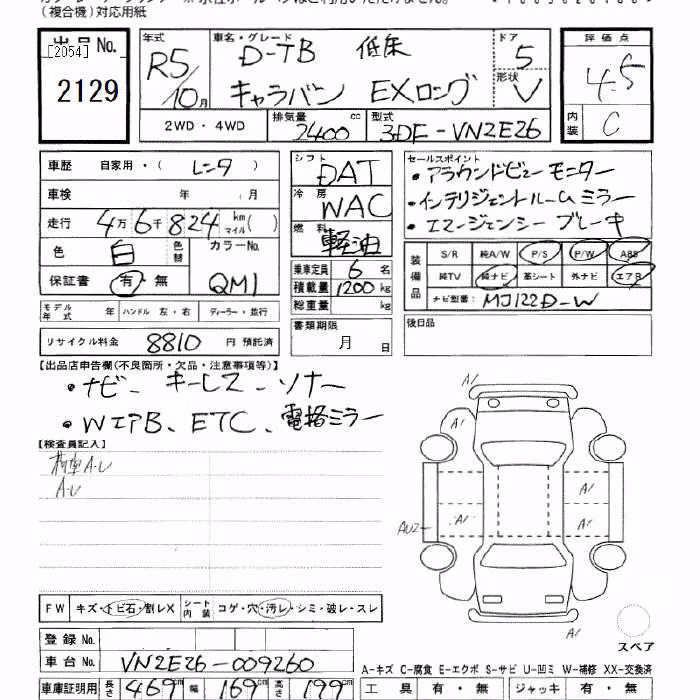 (複合機)対応用紙
出品No. [2054] 2129
年式 R5/10月
車名・グレード D-TB 低床 キャラバン EXロング
ドア 5
形状 V
評価点 4.5
内装 C
2WD・4WD
排気量 2400 cc
型式 3DF-VN2E26
車歴 自家用・( レンタ )
車検 年 月
走行 4万6千824 km マイル( )
色 白 色替 カラーNo. QM1
保証書 有・無
モデル年式 年 ハンドル 左・右 ディーラー・並行
リサイクル料金 8810 円 預託済
シフト DAT
冷房 WAC
燃料 軽油
乗車定員 6 名
積載量 1200 kg
総重量 kg
書類期限 月 日
セールスポイント
・アラウンドビューモニター
・インテリジェントルームミラー
・エマージェンシーブレーキ
装備品 S/R 純A/W P/S P/W ABS
純TV 純ナビ 革シート 外ナビ エアB
ナビ型番: MJ122D-W
後日品
【出品店申告欄(不良箇所・欠品・注意事項等)】
・ナビ、キーレス、ソナー
・WエアB、ETC、電格ミラー
【検査員記入】
A・U
A・U
A1
A1
A1
A1
A1
AU2
A1
スペア
FW キズ・トビ石・割レX シート内装 コゲ・穴・汚レ・シミ・破レ・スレ
登録No.
車台No. VN2E26-009260
車庫証明用 長さ 469 cm 幅 169 cm 高さ 199 cm
A-キズ C-腐食 E-エクボ S-サビ U-凹ミ W-補修 XX-交換済
工具 有・無 ジャッキ 有・無